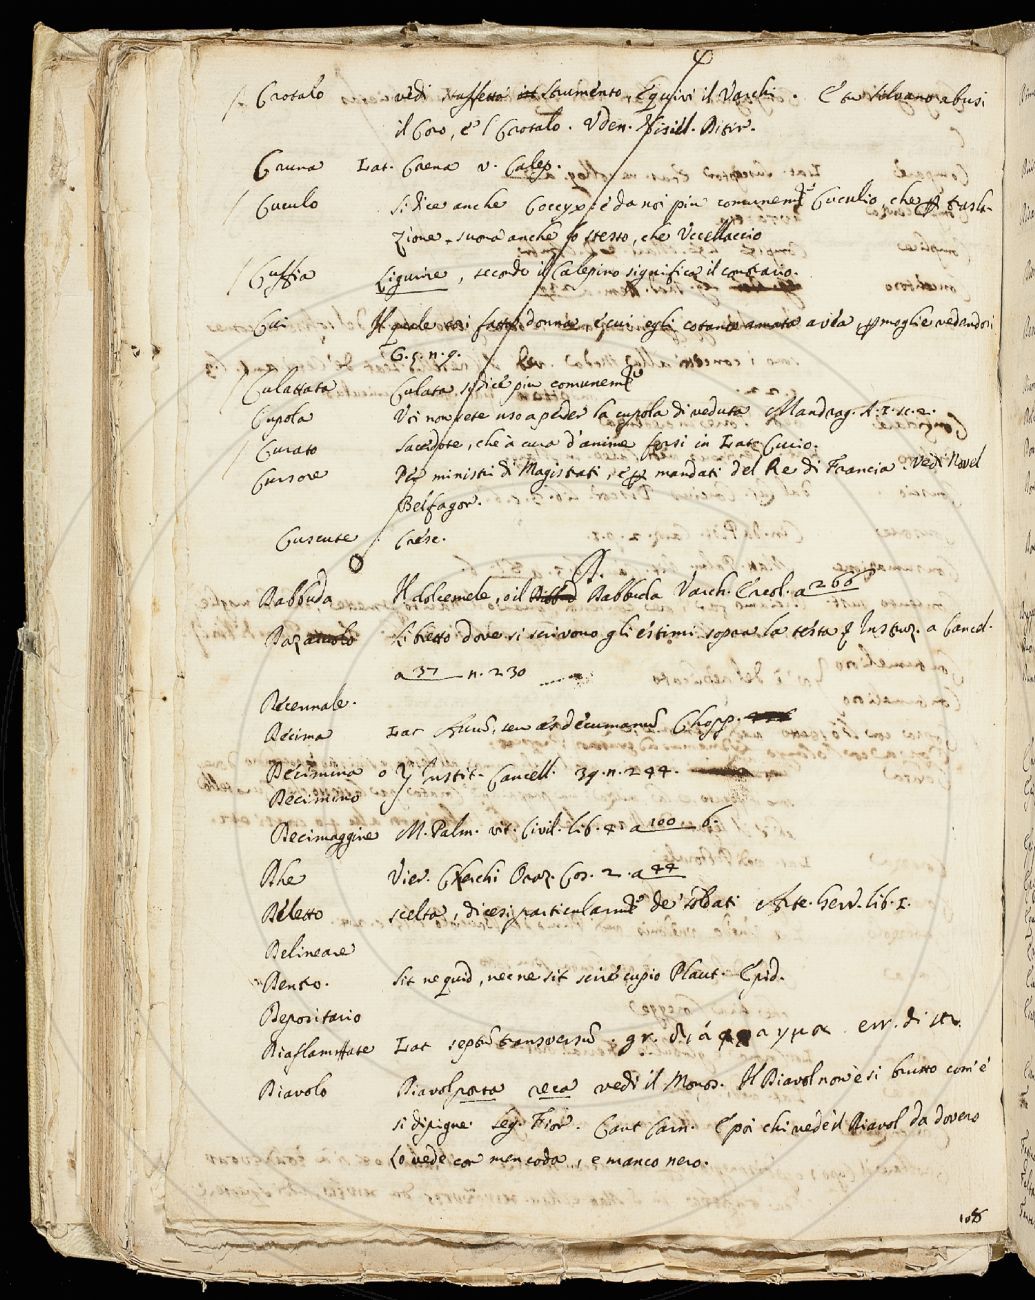 Crotalo vedi strumento, e quivi il Varchi. E tu Silvano abusi
il Coro, e 'l Crotalo. Uden. Nisiel.
Cruna Lat. Crena v. Calep.
Cuculo si dice anche Coccyx: è da noi più comunemte Cuculio, che p trasla-
zione, suona anche lo stesso, che Uccellaccio
Cuffia Ligurire, secondo il Calepino significa il contrario.
Cui donna, e cui egli cotanto amata avea, p moglie vedendosi
C. g. n. 9.
Culattata Culata si dice più comunemte
Cupola Voi non sete uso a perder la cupola di veduta Mandrag. A. 1. sc. 2.
Curato sacerdote, che à cura d'anime forsi in Lat. Curio.
Cursore Per ministri di Magistrati, e p mandati del Re di Francia. Vedi Novel
Belfagor.
Cuscute
D.
Dabbuda Il dolcemele, o il Dabbuda Varch. Ercol. a 266
Daz libretto dove si scrivono gli estimi sopra la testa Instruz. a Cancel.
a 37 n. 230
Decennale.
Decima Lat decumanus Chopp.
Decimina o Instit. Cancell. 39. n. 244.
Decimino
Decimaggine M. Palm. vit. Civil. lib. 4. a 100 6.
Dhe Vier. Cherchi Oraz. Cos. 2. a 44
Deletto scelta, dicesi particolarmte de' soldati Arte. Guerr. lib. 1.
Delineare
Dentro. sit ne quid, necne sit scire cupio Plaut. Epid.
Depositario
Diaflammate Lat septu transversu. gr.
Diavolo Diavol porta reca vedi il Monos. Il Diavol non è si brutto com' è
si dipigne. Leg. Fior. Cant Carn. E poi chi vede il Diavol da dovero
Lo vede con men coda, e manco nero.